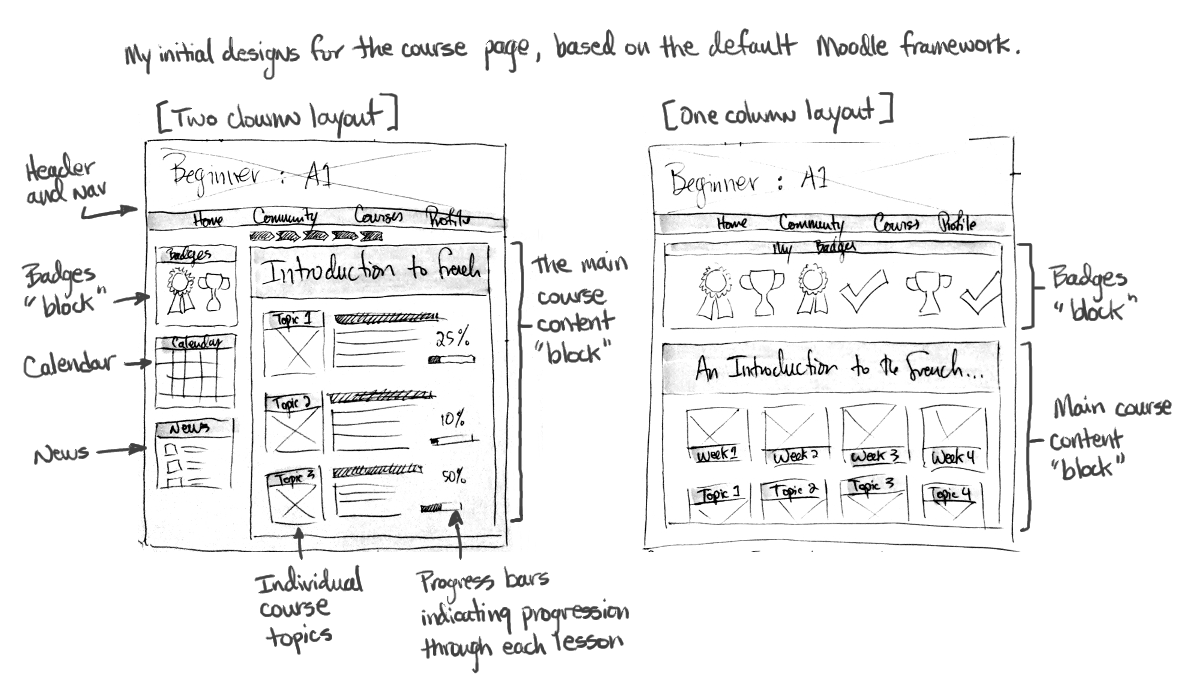 My initial designs for the course page, based on the default Moodle framework.
[Two cloumn layout]
Header
and nav
Beginner : A1
Home Community Courses Profile
Badges
Badges
"block"
Calendar
Calendar
News
News
Introduction to French
Topic 1
25%
Topic 2
10%
Topic 3
50%
The main
course
content
"block"
Individual
course
topics
Progress bars
indicating progression
through each lesson
[One column layout]
Beginner : A1
Home Community Courses Profile
My Badges
Badges
"block"
An Introduction to the French...
Week 1 Week 2 Week 3 Week 4
Topic 1 Topic 2 Topic 3 Topic 4
Main course
content
"block"